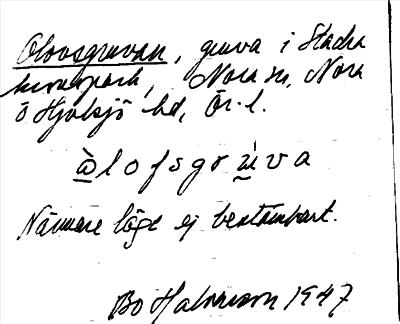 Olovsgruvan, gruva i Stadra
kronopark, Nora sn, Nora
o Hjulsjö hd, Ör. l.
o̲̊̀lofsgru̲̇́va
Närmare läge ej bestämbart.
Bo 1947